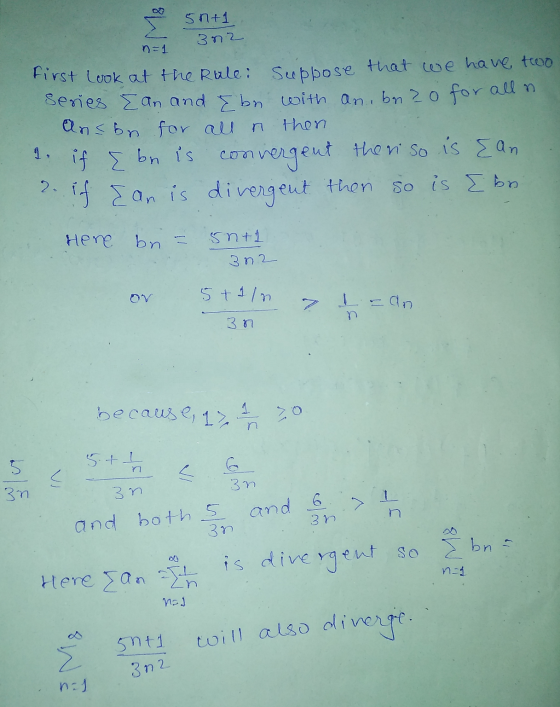 ∞
Σ 5n+1 / 3n2
n=1
First look at the Rule: Suppose that we have two
series Σan and Σbn with an, bn ≥ 0 for all n
an ≤ bn for all n then
1. if Σ bn is convergent then so is Σan
2. if Σan is divergent then so is Σ bn
Here bn = 5n+1 / 3n2
or 5 + 1/n / 3n > 1/n = an
because, 1 ≥ 1/n ≥ 0
5/3n ≤ 5 + 1/n / 3n ≤ 6/3n
and both 5/3n and 6/3n > 1/n
Here Σan = ∞ Σ n=1 1/n is divergent so ∞ Σ n=1 bn =
∞ Σ n=1 5n+1 / 3n2 will also diverge.